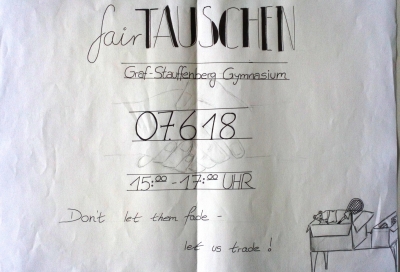 fair TAUSCHEN
Graf-Stauffenberg Gymnasium
07618
15:00 - 17:00 UHR
Don't let them fade -
let us trade!